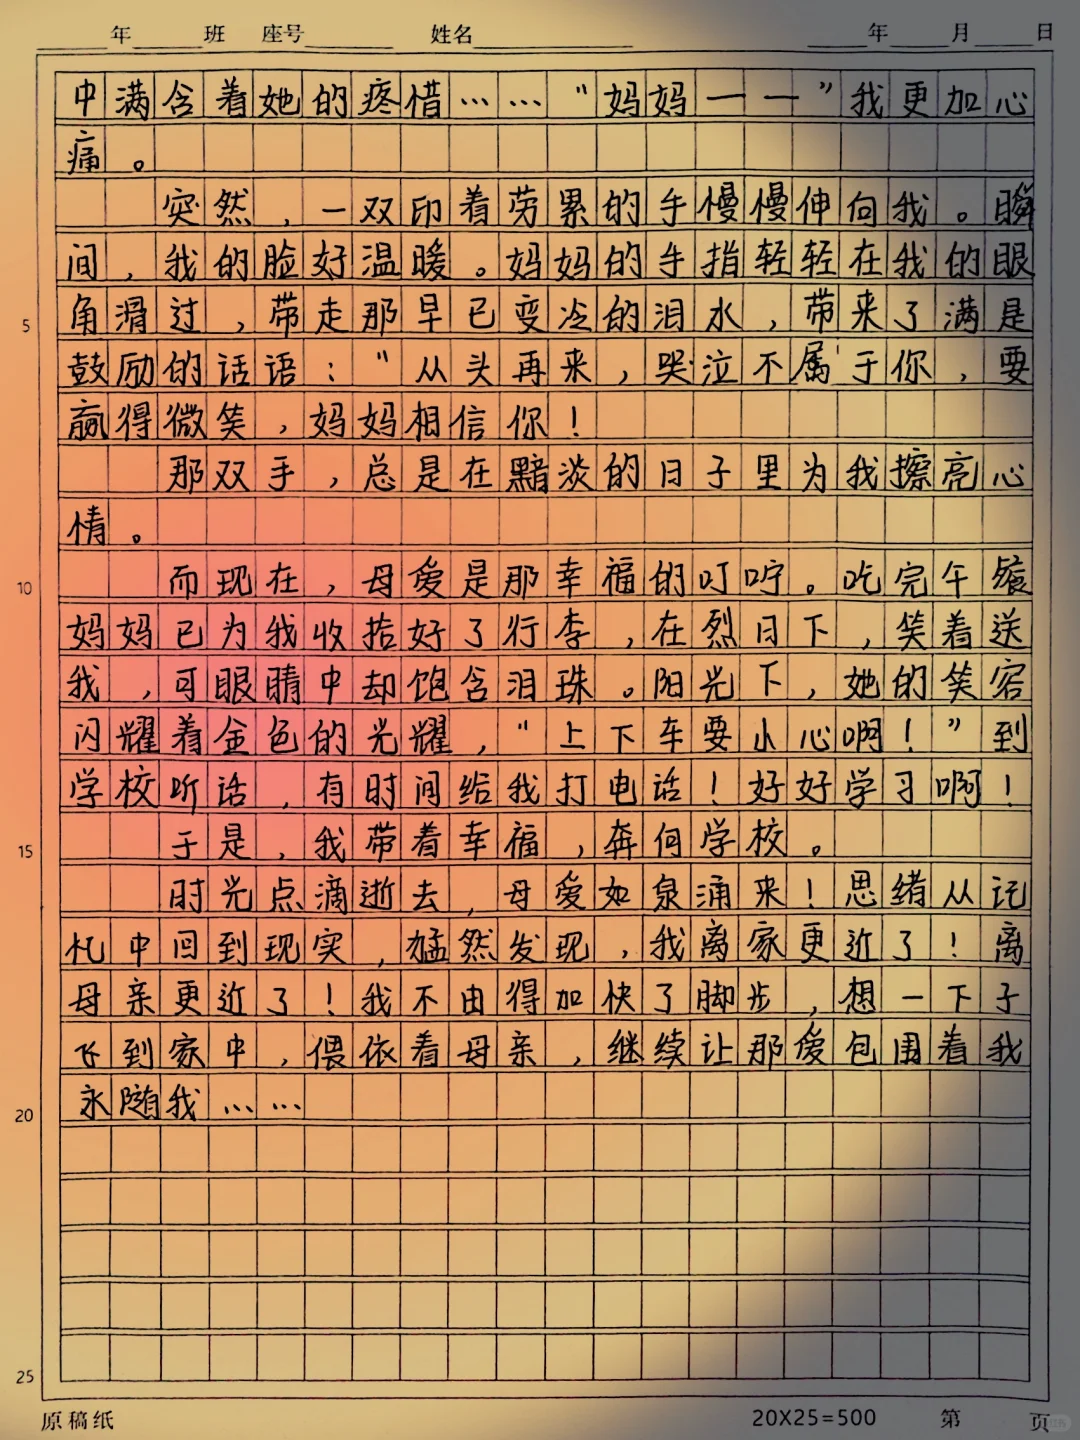 年 班 座号 姓名 年 月 日
中满含着她的疼惜……“妈妈——”我更加心
痛。
突然，一双印着劳累的手慢慢伸向我。瞬
间，我的脸好温暖。妈妈的手指轻轻在我的眼
5 角滑过，带走那早已变冷的泪水，带来了满是
鼓励的话语：“从头再来，哭泣不属于你，要
赢得微笑，妈妈相信你！
那双手，总是在黯淡的日子里为我擦亮心
情。
10 而现在，母爱是那幸福的叮咛。吃完午餐
妈妈已为我收拾好了行李，在烈日下，笑着送
我，可眼睛中却饱含泪珠。阳光下，她的笑容
闪耀着金色的光耀，“上下车要小心啊！”到
学校听话，有时间给我打电话！好好学习啊！
15 于是，我带着幸福，奔向学校。
时光点滴逝去，母爱如泉涌来！思绪从记
忆中回到现实，猛然发现，我离家更近了！离
母亲更近了！我不由得加快了脚步，想一下子
飞到家中，偎依着母亲，继续让那爱包围着我
20 永随我……
25
原稿纸 20X25=500 第 页